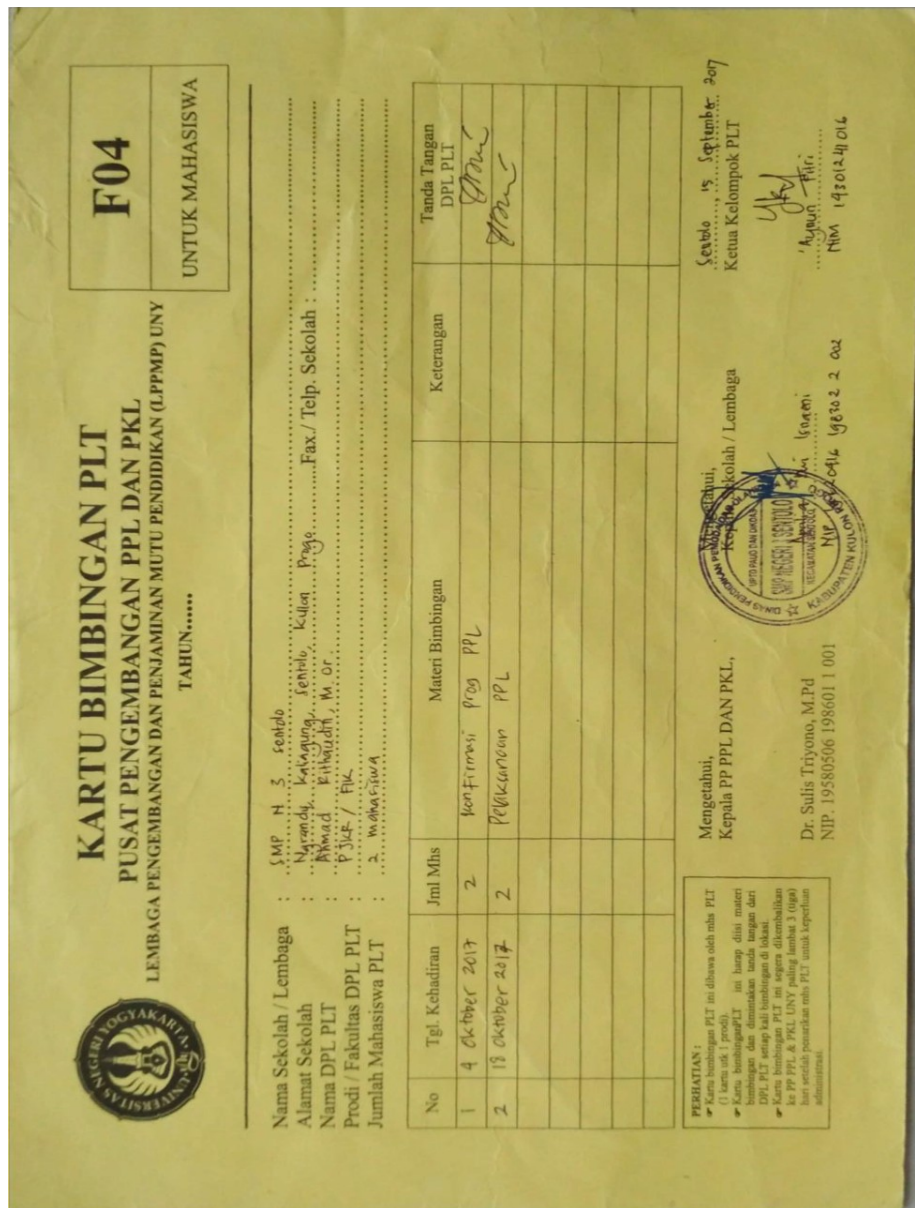 UNIVERSITAS NEGERI YOGYAKARTA
KARTU BIMBINGAN PLT
PUSAT PENGEMBANGAN PPL DAN PKL
LEMBAGA PENGEMBANGAN DAN PENJAMINAN MUTU PENDIDIKAN (LPPMP) UNY
TAHUN......
F04
UNTUK MAHASISWA
Nama Sekolah / Lembaga : SMP N 3 Sentolo
Alamat Sekolah : Kaliagung, Sentolo, Kulon Progo Fax./ Telp. Sekolah :
Nama DPL PLT : Ahmad M. Or.
Prodi / Fakultas DPL PLT : PJKR / FIK
Jumlah Mahasiswa PLT : 2 mahasiswa
No Tgl. Kehadiran Jml Mhs Materi Bimbingan Keterangan Tanda Tangan DPL PLT
1 9 Oktober 2017 2 Konfirmasi Prog PPL
2 18 Oktober 2017 2 Pelaksanaan PPL
PERHATIAN :
☞ Kartu bimbingan PLT ini dibawa oleh mhs PLT
(1 kartu utk 1 prodi).
☞ Kartu bimbinganPLT ini harap diisi materi
bimbingan dan dimintakan tanda tangan dari
DPL PLT setiap kali bimbingan di lokasi.
☞ Kartu bimbingan PLT ini segera dikembalikan
ke PP PPL & PKL UNY paling lambat 3 (tiga)
hari setelah penarikan mhs PLT untuk keperluan
administrasi.
Mengetahui,
Kepala PP PPL DAN PKL,
Dr. Sulis Triyono, M.Pd
NIP. 19580506 198601 1 001
Mengetahui,
Kepala Sekolah / Lembaga
SMP NEGERI 3 SENTOLO
KABUPATEN KULON PROGO
Isnaeni
NIP 198302 2 002
Sentolo, 15 September 2017
Ketua Kelompok PLT
Fitri
NIM 14301241016